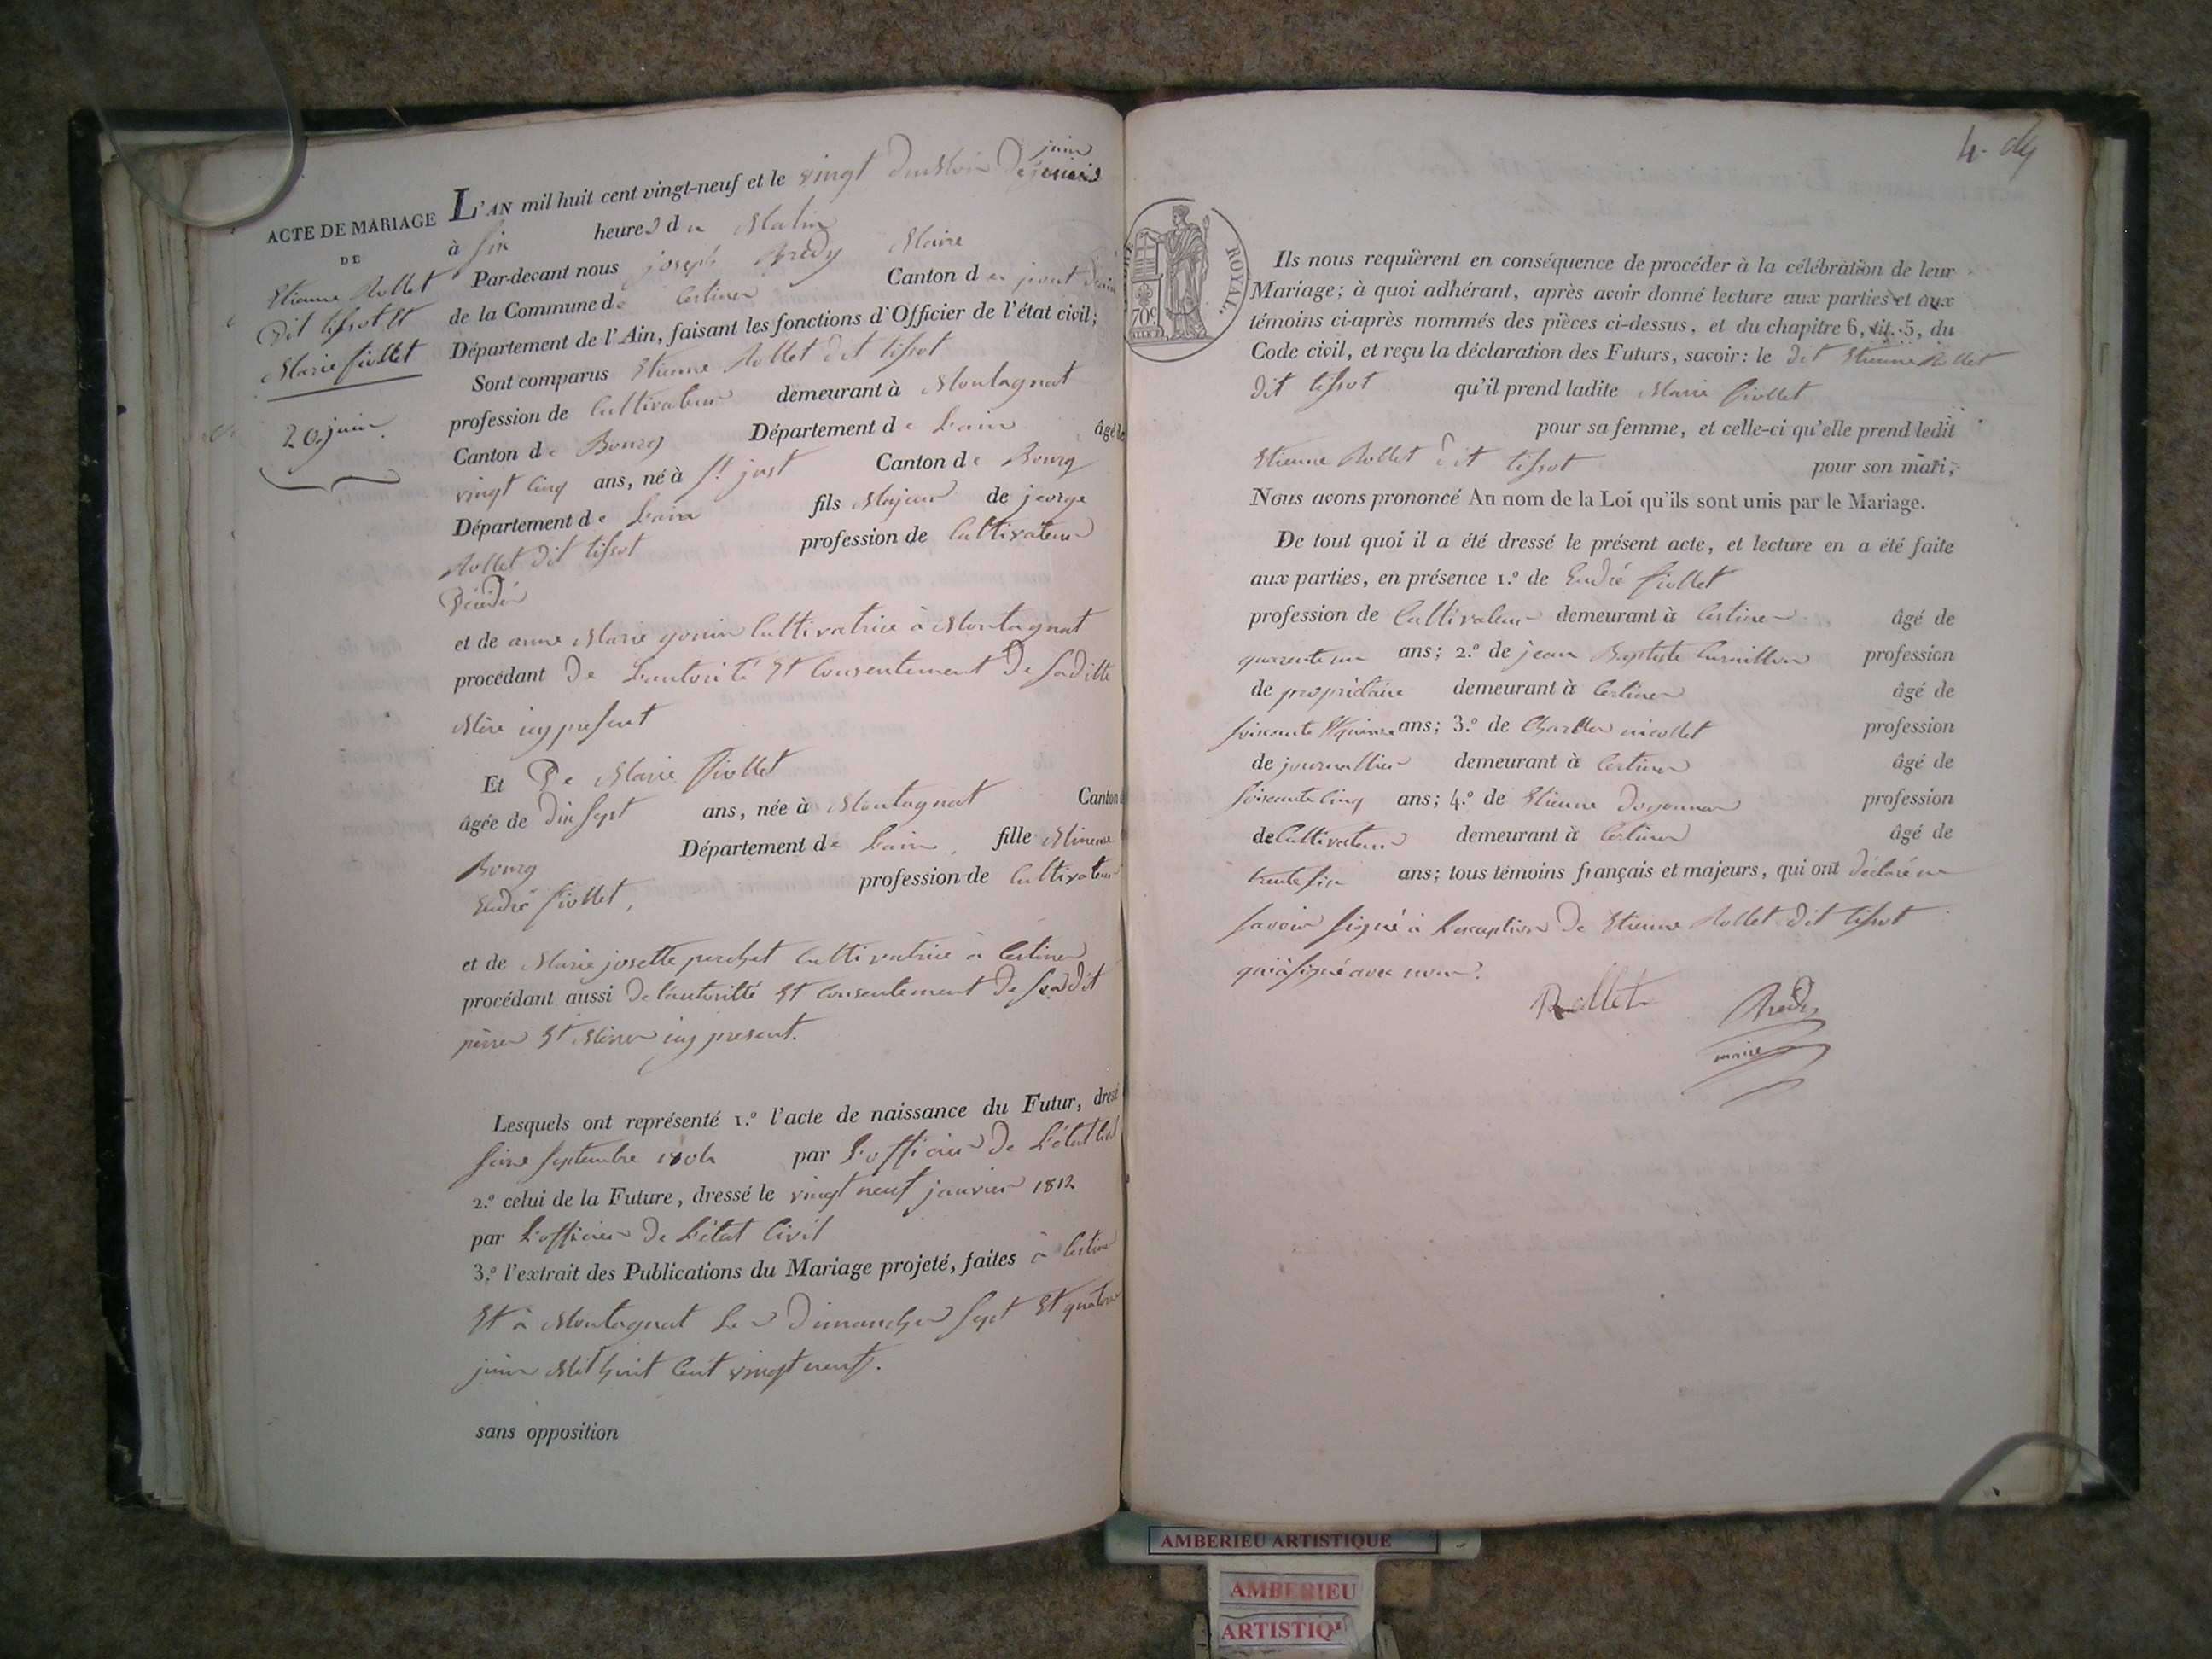 ACTE DE MARIAGE
DE
Etienne Rollet
Dit tissot Et
Marie fiollet
20 juin
L'AN mil huit cent vingt-neuf et le vingt du Mois De
juin
à six heures du Matin
Par-devant nous joseph Bredy Maire
de la Commune de Certines Canton de pont Dain
Département de l'Ain, faisant les fonctions d'Officier de l'état civil;
Sont comparus Etienne Rollet dit tissot
profession de Cultivateur demeurant à Montagnat
Canton de Bourg Département de Lain âgé de
vingt Cinq ans, né à St. just Canton de Bourg
Département de Lain fils Majeur de jeorge
Rollet dit tissot profession de Cultivateur
Décédé
et de anne Marie gonin Cultivatrice à Montagnat
procédant De Lautorité Et Consentement De sadille
Mère icy present
Et De Marie fiollet
âgée de dix sept ans, née à Montagnat Canton
Bourg Département de Lain, fille Mineure
Endré fiollet, profession de Cultivateur
et de Marie josette perchet Cultivatrice à Certines
procédant aussi De lautorité Et Consentement De sesdit
pères Et Mères icy present.
Lesquels ont représenté 1.º l'acte de naissance du Futur, dressé
seize septembre 1804 par L'officier De L'état Civil
2.º celui de la Future, dressé le vingt neuf janvier 1812
par L'officier De L'état Civil
3.º l'extrait des Publications du Mariage projeté, faites à Certines
Et à Montagnat Les Dimanches sept Et quatorze
juin Mil huit Cent vingt neuf.
sans opposition
4.
ROYAL.
70c
Ils nous requièrent en conséquence de procéder à la célébration de leur
Mariage; à quoi adhérant, après avoir donné lecture aux parties et aux
témoins ci-après nommés des pièces ci-dessus, et du chapitre 6, tit. 5, du
Code civil, et reçu la déclaration des Futurs, savoir: le dit Etienne Rollet
dit tissot qu'il prend ladite Marie fiollet
pour sa femme, et celle-ci qu'elle prend ledit
Etienne Rollet dit tissot pour son mari;
Nous avons prononcé Au nom de la Loi qu'ils sont unis par le Mariage.
De tout quoi il a été dressé le présent acte, et lecture en a été faite
aux parties, en présence 1.º de Endré fiollet
profession de Cultivateur demeurant à Certines âgé de
quarente un ans; 2.º de jean Baptiste profession
de propriétaire demeurant à Certines âgé de
soixante Et quinze ans; 3.º de Charles nicollet profession
de journallier demeurant à Certines âgé de
soixante Cinq ans; 4.º de Etienne profession
de Cultivateur demeurant à Certines âgé de
trente six ans; tous témoins français et majeurs, qui ont déclaré ne
savoir signé à L'exception De Etienne Rollet dit tissot
qui à signé avec nous.
Rollet Bredy
maire
AMBERIEU ARTISTIQUE
AMBERIEU
ARTISTIQ